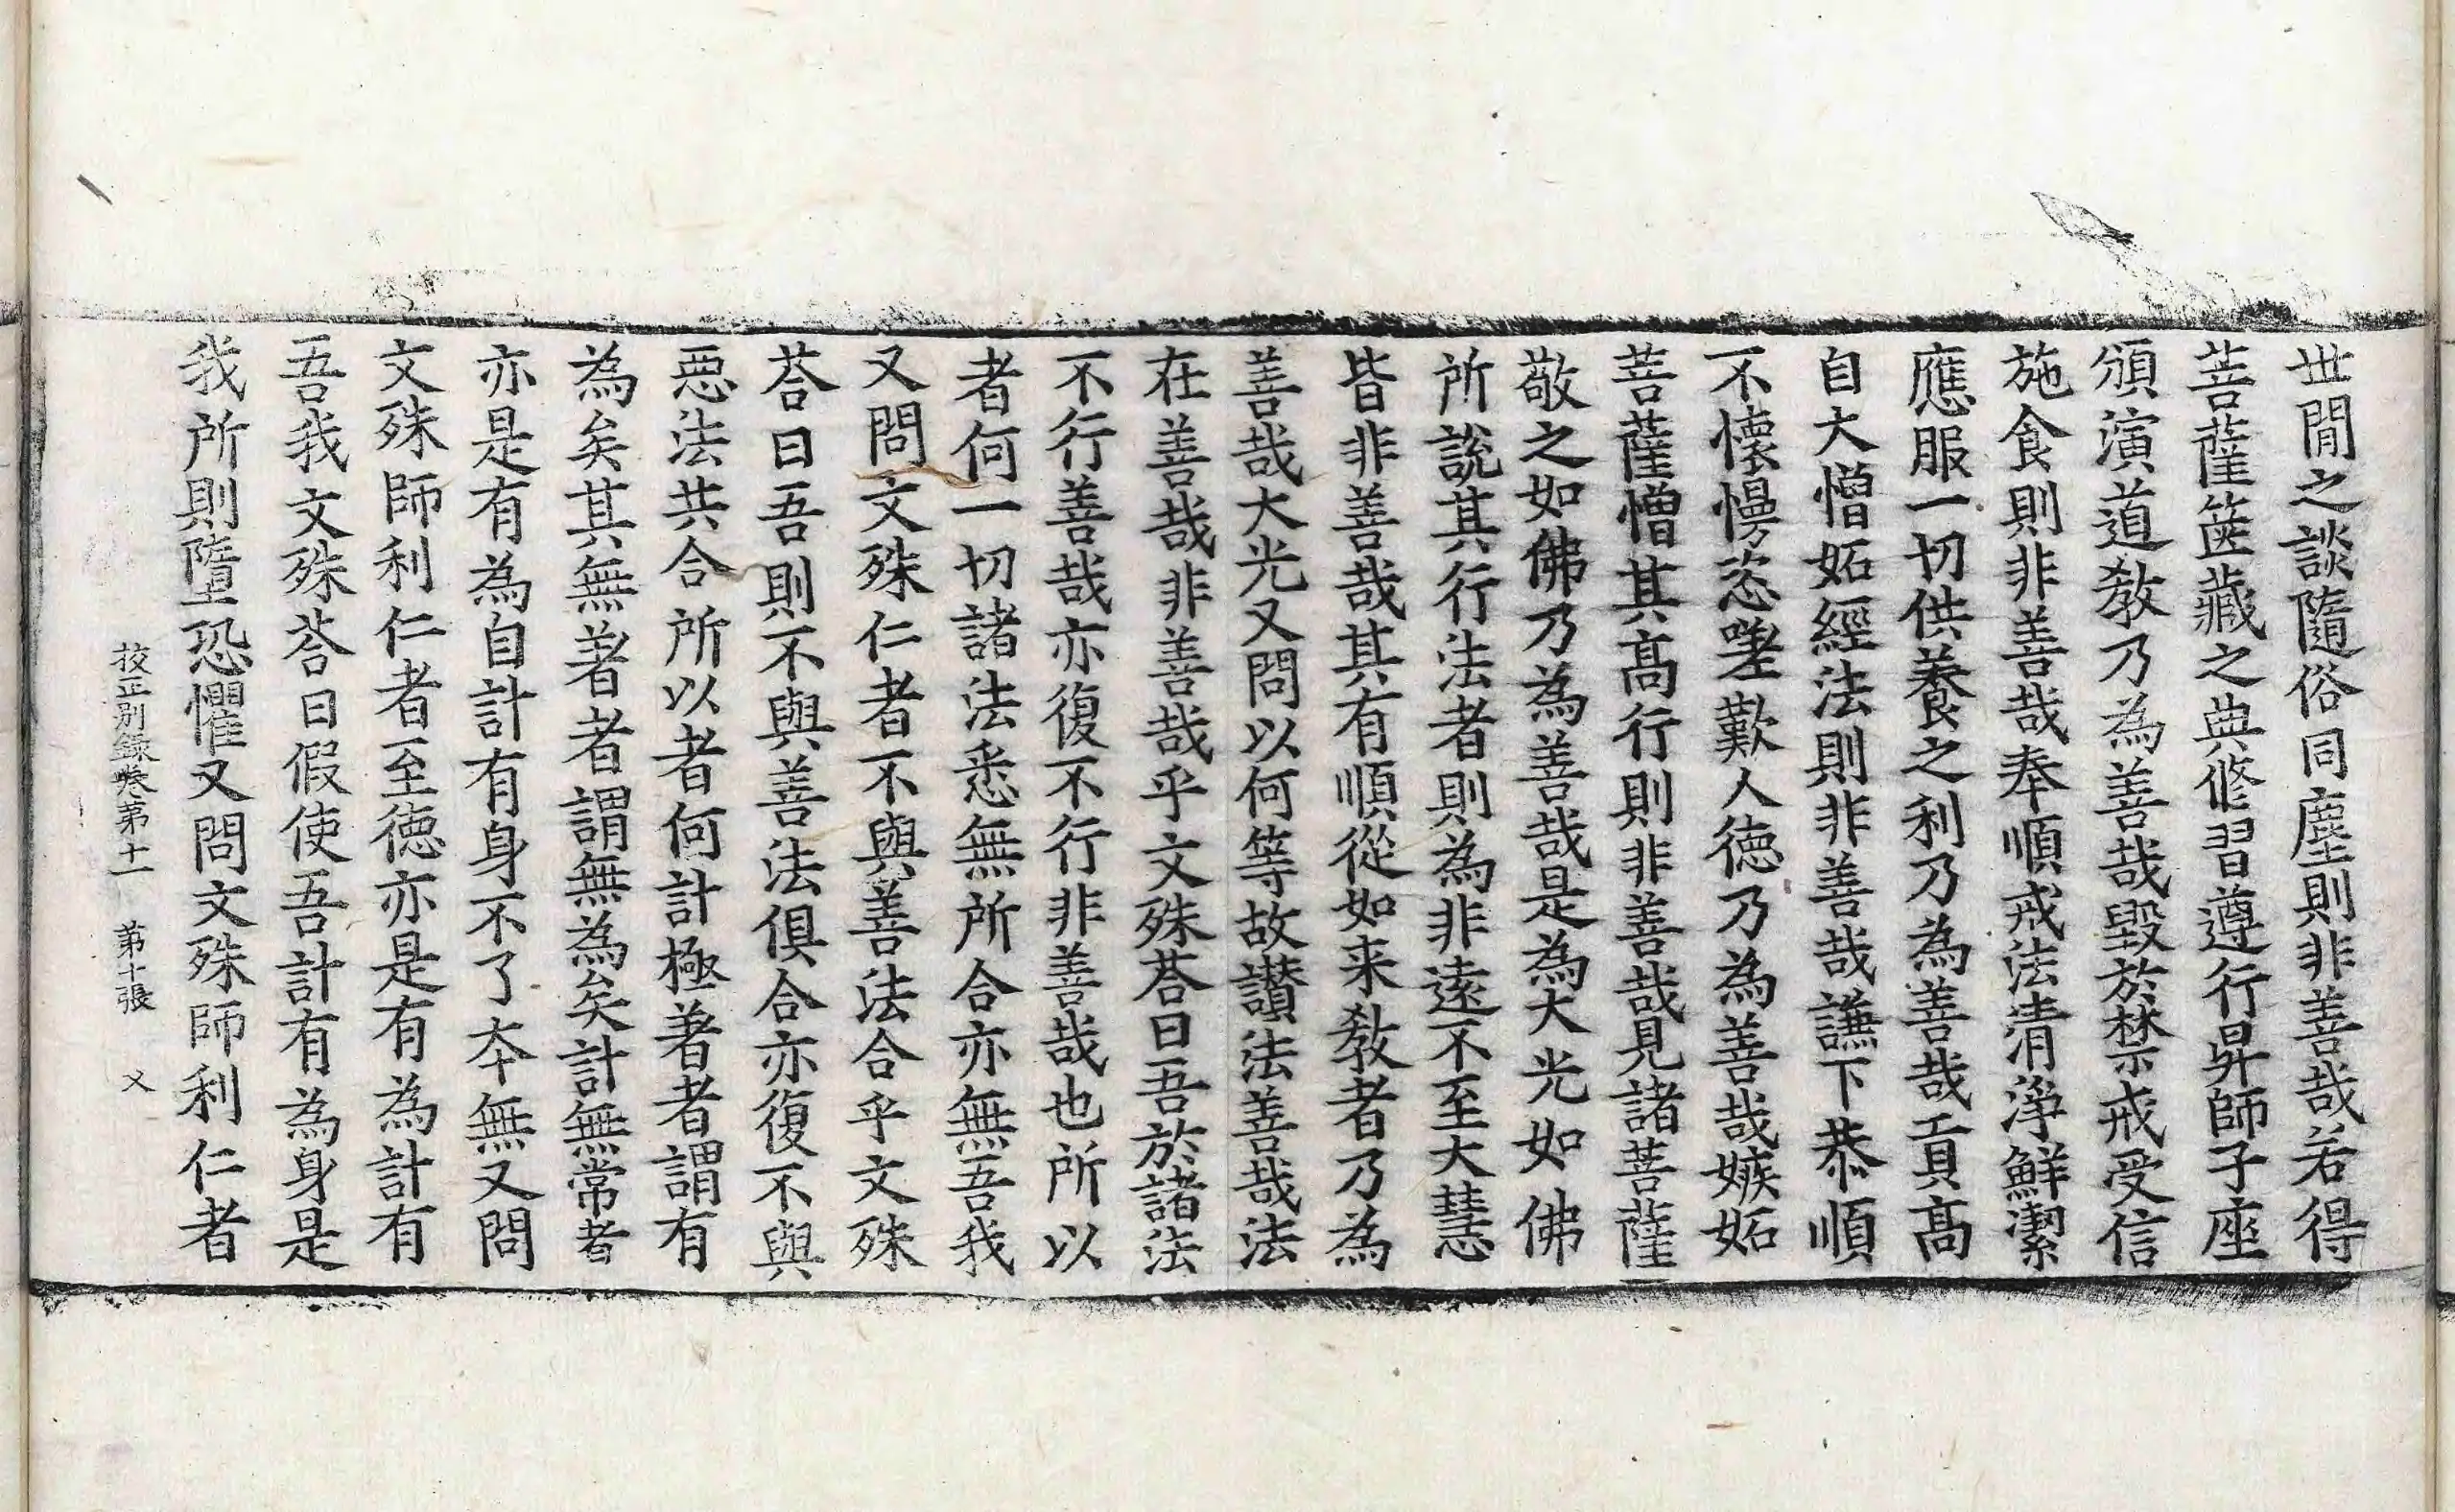 世閒之談隨俗同塵則非善哉若得
菩薩篋藏之典修習遵行昇師子座
頒演道教乃為善哉毀於禁戒受信
施食則非善哉奉順戒法清淨鮮潔
應服一切供養之利乃為善哉貢高
自大憎妬經法則非善哉謙下恭順
不懷慢恣嗟歎人德乃為善哉嫉妬
菩薩憎其高行則非善哉見諸菩薩
敬之如佛乃為善哉是為大光如佛
所說其行法者則為非遠不至大慧
皆非善哉其有順從如来教者乃為
善哉大光又問以何等故讃法善哉法
在善哉非善哉乎文殊荅曰吾於諸法
不行善哉亦復不行非善哉也所以
者何一切諸法悉無所合亦無吾我
又問文殊仁者不與善法合乎文殊
荅曰吾則不與善法俱合亦復不與
惡法共合所以者何計極著者謂有
為矣其無著者謂無為矣計無常者
亦是有為自計有身不了夲無又問
文殊師利仁者至德亦是有為計有
吾我文殊荅曰假使吾計有為身是
我所則墮恐懼又問文殊師利仁者
校正別録卷第十一　第十張　乂